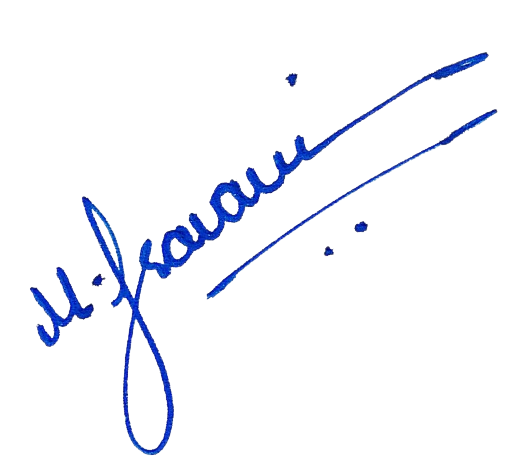 M. Sravani